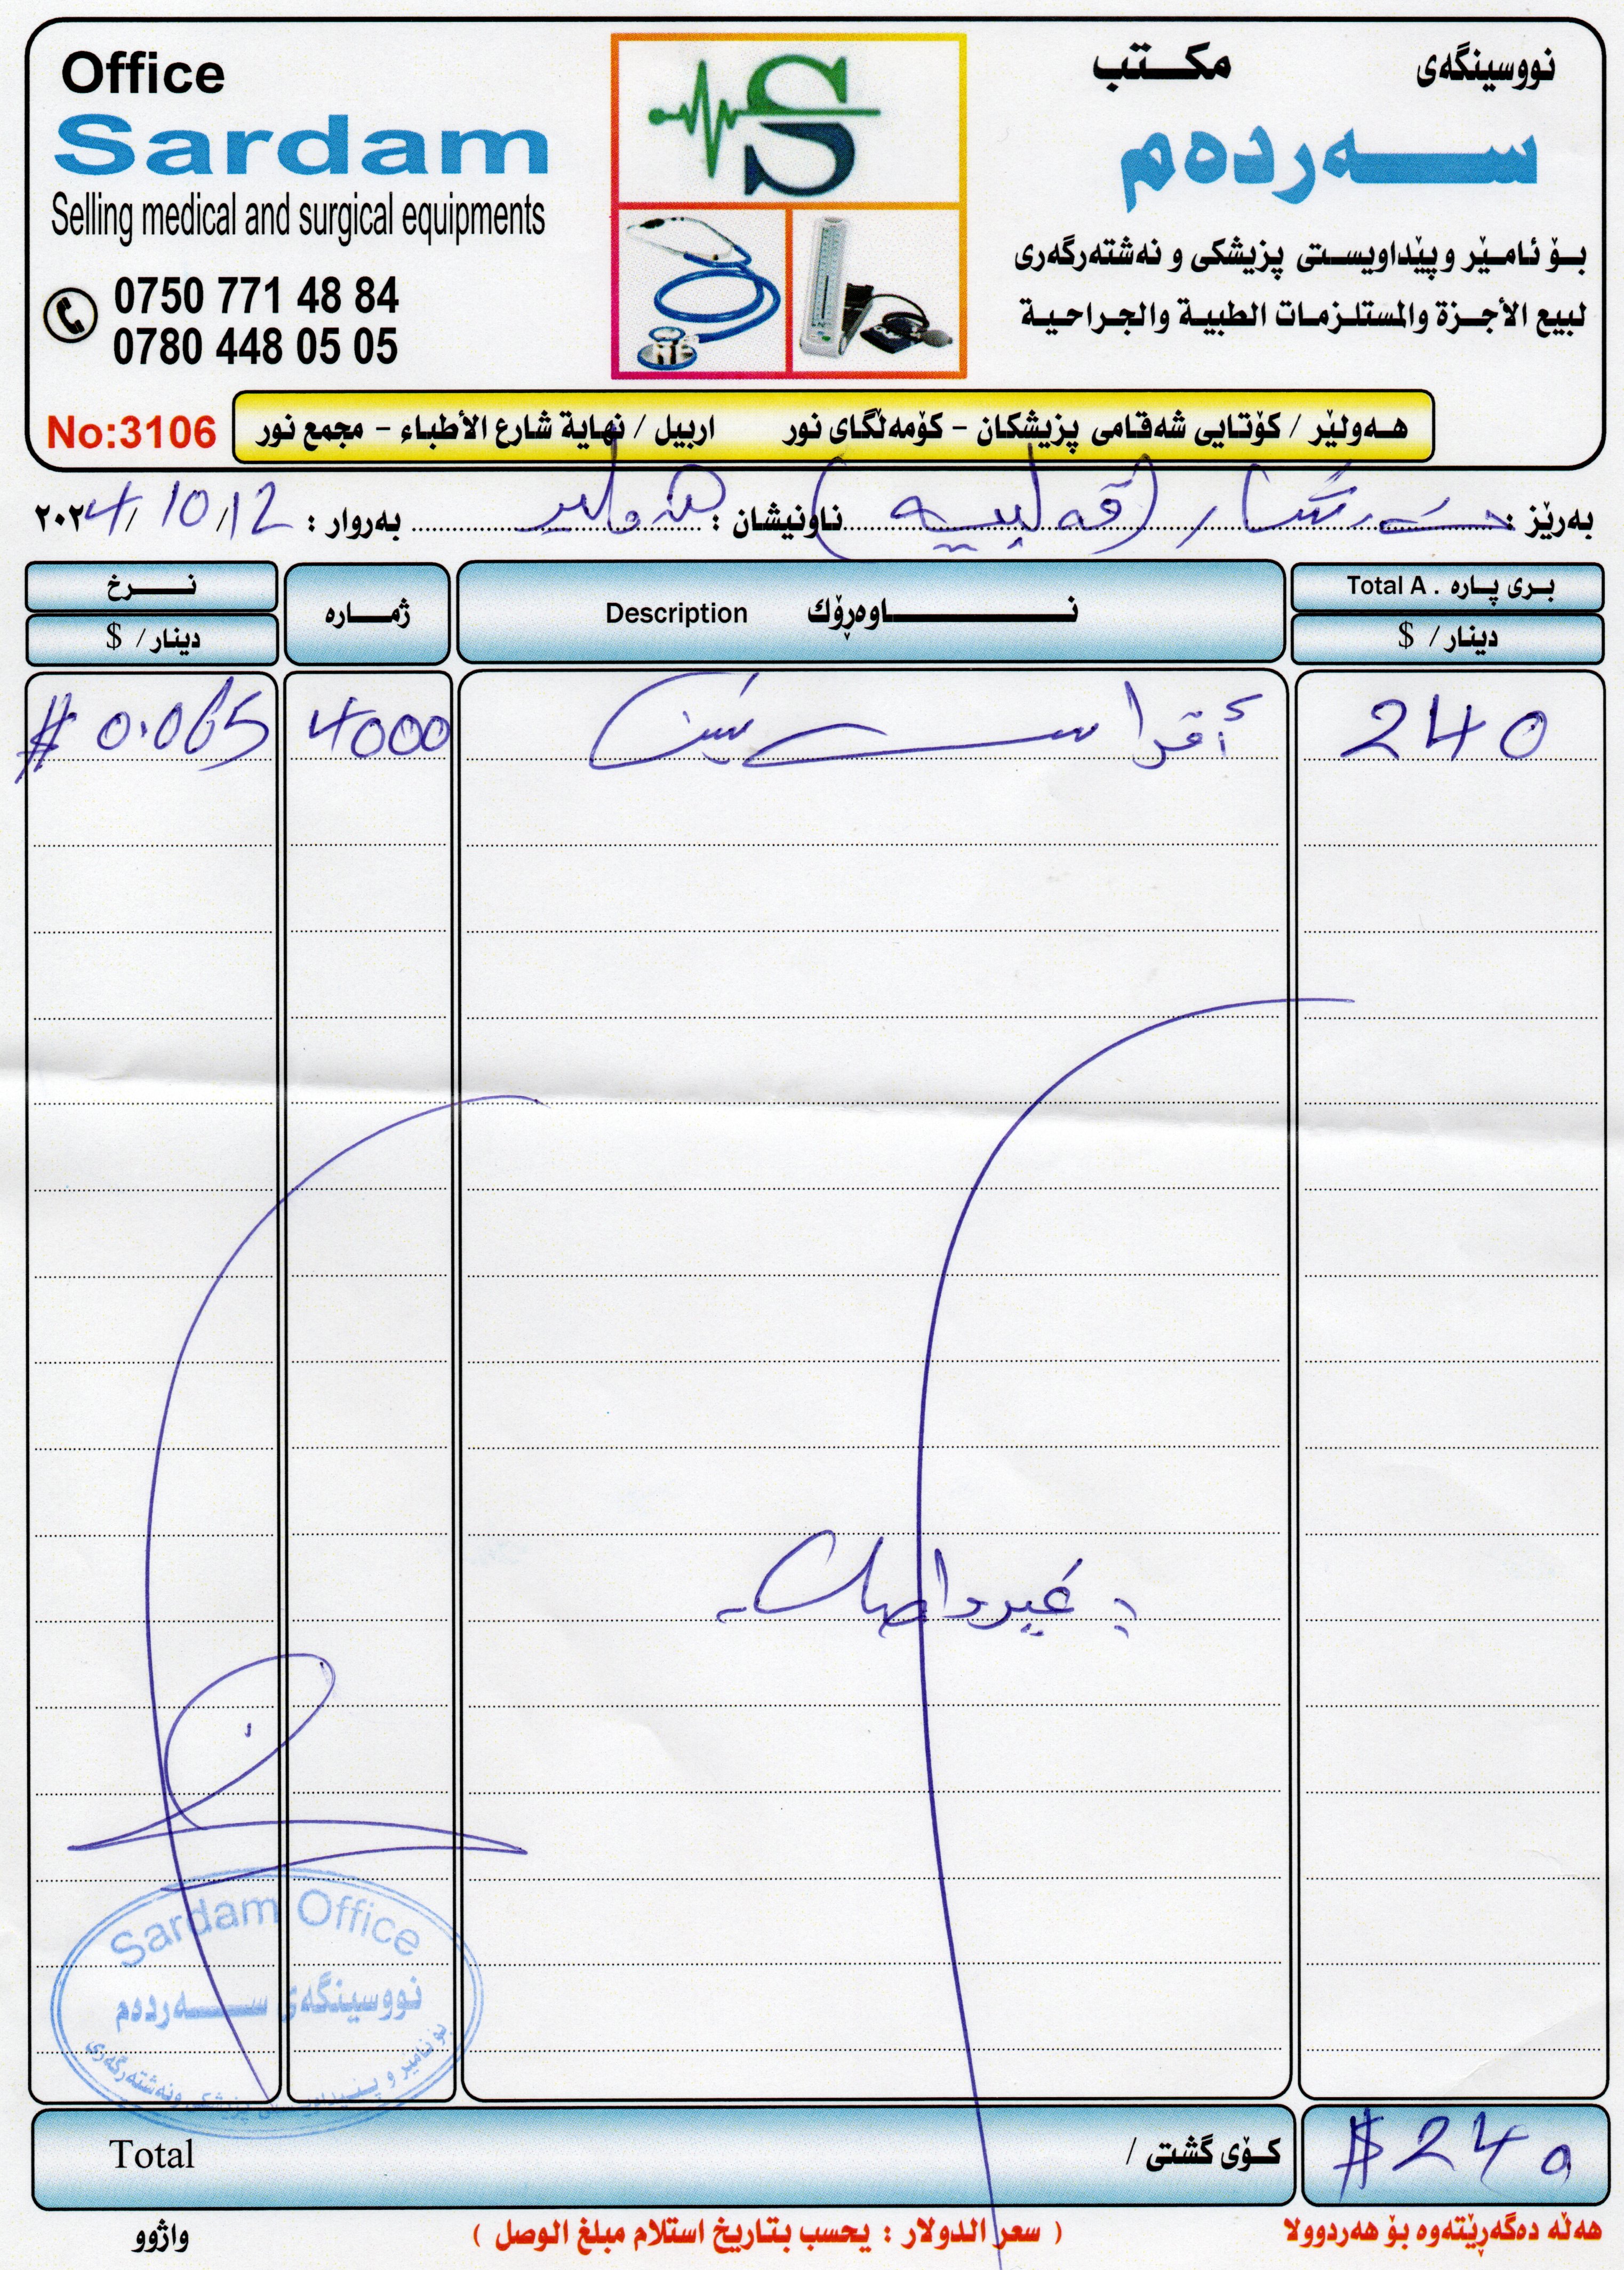 Office
Sardam
Selling medical and surgical equipments
0750 771 48 84
0780 448 05 05
No:3106
S
نووسینگەی مکتب
سەردەم
بۆ ئامێر و پێداویستی پزیشکی و نەشتەرگەری
لبيع الأجزة والمستلزمات الطبية والجراحية
هەولێر / کۆتایی شەقامی پزیشکان - کۆمەڵگای نور اربيل / نهاية شارع الأطباء - مجمع نور
بەرێز : ناونیشان : هەولێر بەروار : ٢٠٢4/10/12
بری پارە . Total A
دینار / $
ناوەرۆك Description
ژمارە
نرخ
دینار / $
240
4000
$ 0.065
غير واصل
Sardam Office
نووسینگەی سەردەم
بۆ ئامێر و پێداویستی پزیشکی ونەشتەرگەری
کۆی گشتی / Total
$240
هەڵە دەگەرێتەوە بۆ هەردوولا
( سعر الدولار : يحسب بتاريخ استلام مبلغ الوصل )
واژوو